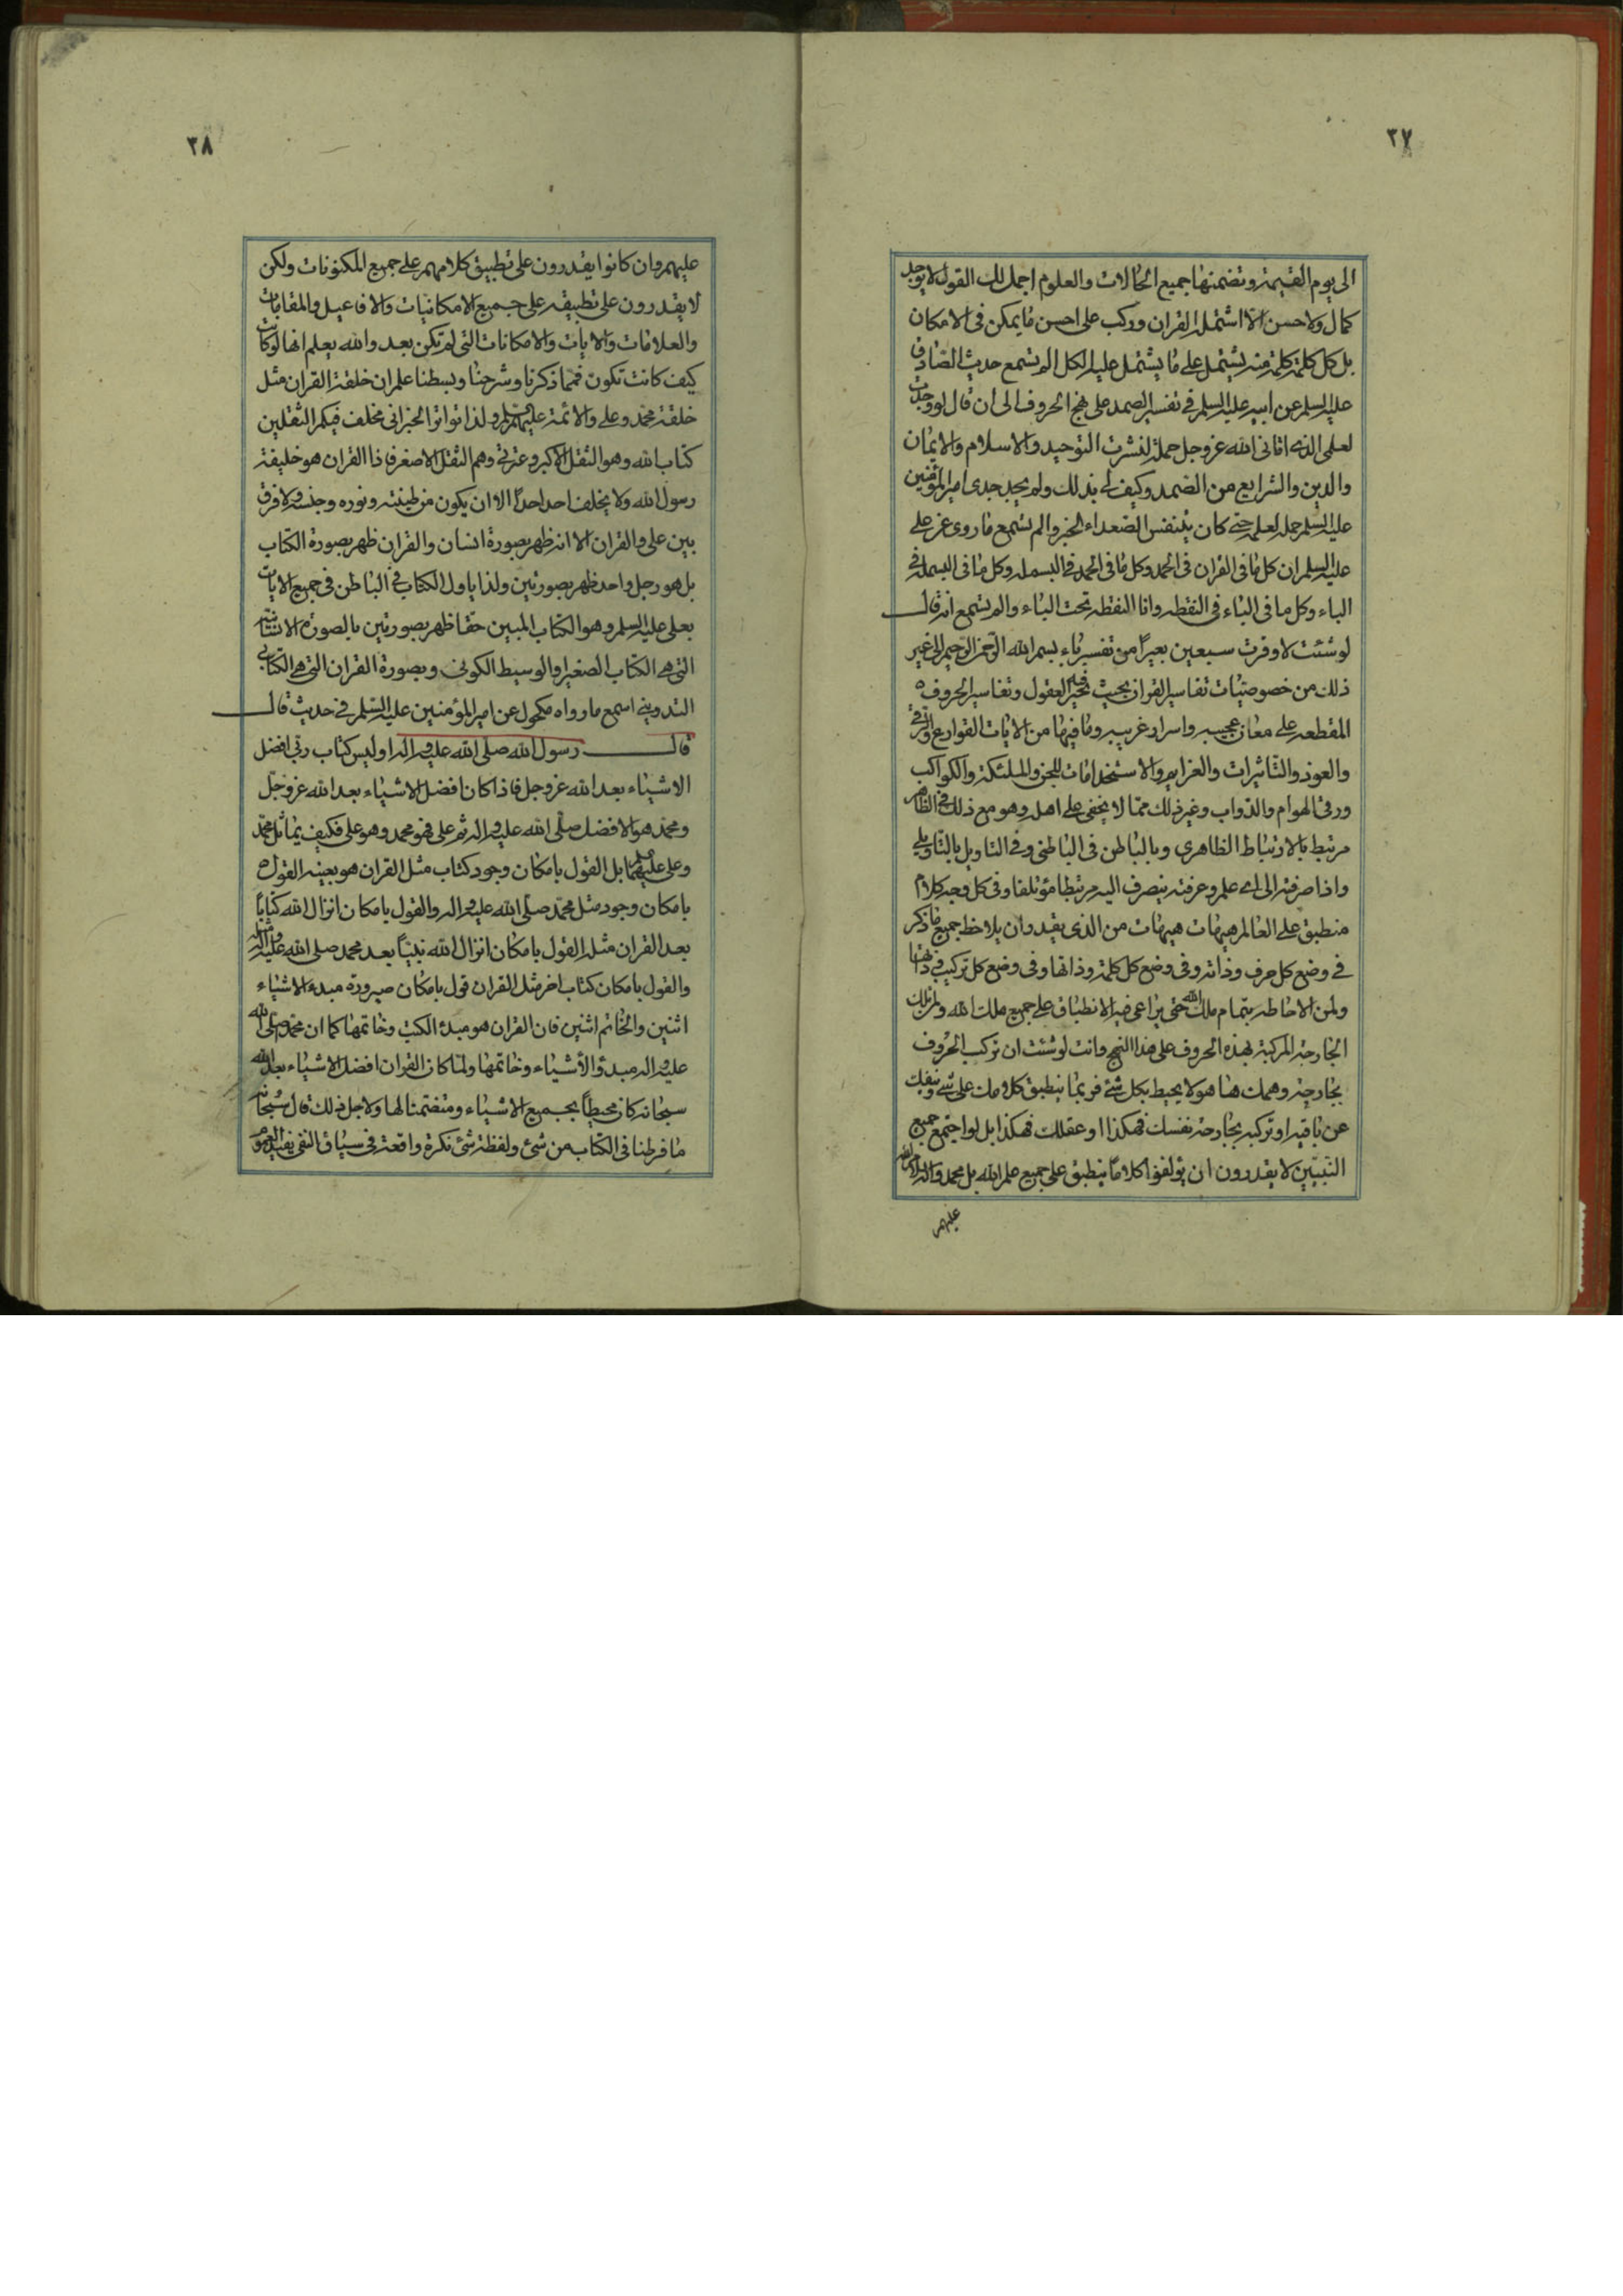 ٢٧
الى يوم القيمة وتضمنها جميع الحالات والعلوم اجمل لك القول لا يوجد
كمال ولا حسن الا اشتمله القران وركب على احسن ما يمكن فى الامكان
بل كل كلمة كلمة منه يشتمل على ما يشتمل عليه الكل الم تسمع حديث الصادق
عليه السلم عن ابيه عليه السلم فى تفسير الصمد على نهج الحروف الى ان قال لو وجدت
لعلمى الذى اتانى الله عز وجل حملة لنشرت التوحيد والاسلام والايمان
والدين والشرايع من الصمد وكيف لى بذلك ولم يجد جدى امير المؤمنين
عليه السلم حملة لعلمه حتى كان يتنفس الصعداء الخبر والم تسمع ما روى عن على
عليه السلم ان كل ما فى القران فى الحمد وكل ما فى الحمد فى البسمله وكل ما فى البسملة فى
الباء وكل ما فى الباء فى النقطه وانا النقطه تحت الباء والم تسمع انه قال
لو شئت لاوقرت سبعين بعيرًا من تفسير باء بسم الله الرحمن الرحيم الى غير
ذلك من خصوصيات تفاسير القران بحيث تحير فيه العقول وتفاسير الحروف
المقطعه على معان عجيبه واسرار غريبه وما فيها من الايات القوارع والرقى
والعوذ والتاثيرات والعزايم والاستخدامات للجن والملئكة والكواكب
ورقى الهوام والدواب وغير ذلك مما لا يخفى على اهله وهو مع ذلك فى الظاهر
مرتبط بالارتباط الظاهرى وبالباطن فى الباطنى وفى التاويل بالتاويلى
واذا صرفته الى اى علم وعرفته ينصرف اليه مرتبطا مؤتلفا وفى كل وجه كلام
منطبق على العالم هيهات هيهات من الذى يقدر ان يلاحظ جميع ما ذكر
فى وضع كل حرف وذاته وفى وضع كل كلمة وذاتها وفى وضع كل تركيب وذاتها
ولمن الاحاطه بتمام ملك الله حتى يراعى فيه الانطباق على جميع ملك الله ولم تلك
الجارحة المركبة لهذه الحروف على هذا النهج وانت لو شئت ان تركب الحروف
بجارحة وهمك هنا هو لا يحيط بكل شئ فربما ينطبق كلامك على شئ ويفلت
عن باقيه او تركبه بجارحة نفسك فهكذا او عقلك فهكذا بل لو اجتمع جميع
النبيين لا يقدرون ان يؤلفوا كلامًا ينطبق على جميع علم الله بل محمد واله سلام الله
عليهم
٢٨
عليهم وان كانوا يقدرون على تطبيق كلامهم على جميع المكنونات ولكن
لا يقدرون على تطبيقه على جميع الامكانيات والافاعيل والمقامات
والعلامات والايات والامكانات التى لم تكن بعد والله يعلم انها لو كانت
كيف كانت تكون فمما ذكرنا وشرحنا وبسطنا علم ان خلقة القران مثل
خلقة محمد وعلى والائمة عليهم السلم ولذا تواتر الخبر انى مخلف فيكم الثقلين
كتاب الله وهو الثقل الاكبر وعترتى وهم الثقل الاصغر فاذا القران هو خليفة
رسول الله ولا يخلف احد احدًا الا ان يكون من طينته ونوره وجنسه ولا فرق
بين على والقران الا انه ظهر بصورة انسان والقران ظهر بصورة الكتاب
بل هو رجل واحد ظهر بصورتين ولذا ياول الكتاب فى الباطن فى جميع الايات
بعلى عليه السلم وهو الكتاب المبين حقا ظهر بصورتين بالصورة الانسانية
التى هى الكتاب الصغير او الوسيط الكونى وبصورة القران التى هى الكتاب
التدوينى اسمع ما رواه مكحول عن امير المؤمنين عليه السلم فى حديث قال
قال رسول الله صلى الله عليه واله اوليس كتاب ربى افضل
الاشياء بعد الله عز وجل فاذا كان افضل الاشياء بعد الله عز وجل
ومحمد هو الافضل صلى الله عليه واله ثم على فهو محمد وهو على فكيف يماثل محمد
وعلى عليهما السلم بل القول بامكان وجود كتاب مثل القران هو بعينه القول
بامكان وجود مثل محمد صلى الله عليه واله والقول بامكان انزال الله كتابًا
بعد القران مثل القول بامكان انزال الله نبيًا بعد محمد صلى الله عليه واله
والقول بامكان كتاب اخر مثل القران قول بامكان صيرورة مبدء الاشياء
اثنين والخاتم اثنين فان القران هو مبدء الكتب وخاتمها كما ان محمد صلى الله
عليه واله مبدؤ الأشياء وخاتمها ولما كان القران افضل الاشياء بعد الله
سبحانه كان محيطًا بجميع الاشياء ومتضمنا لها ولاجل ذلك قال سبحانه
ما فرطنا فى الكتاب من شئ ولفظة شئ نكرة واقعة فى سياق النفى يفيد العموم